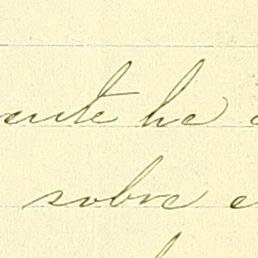 ente ha
sobre e